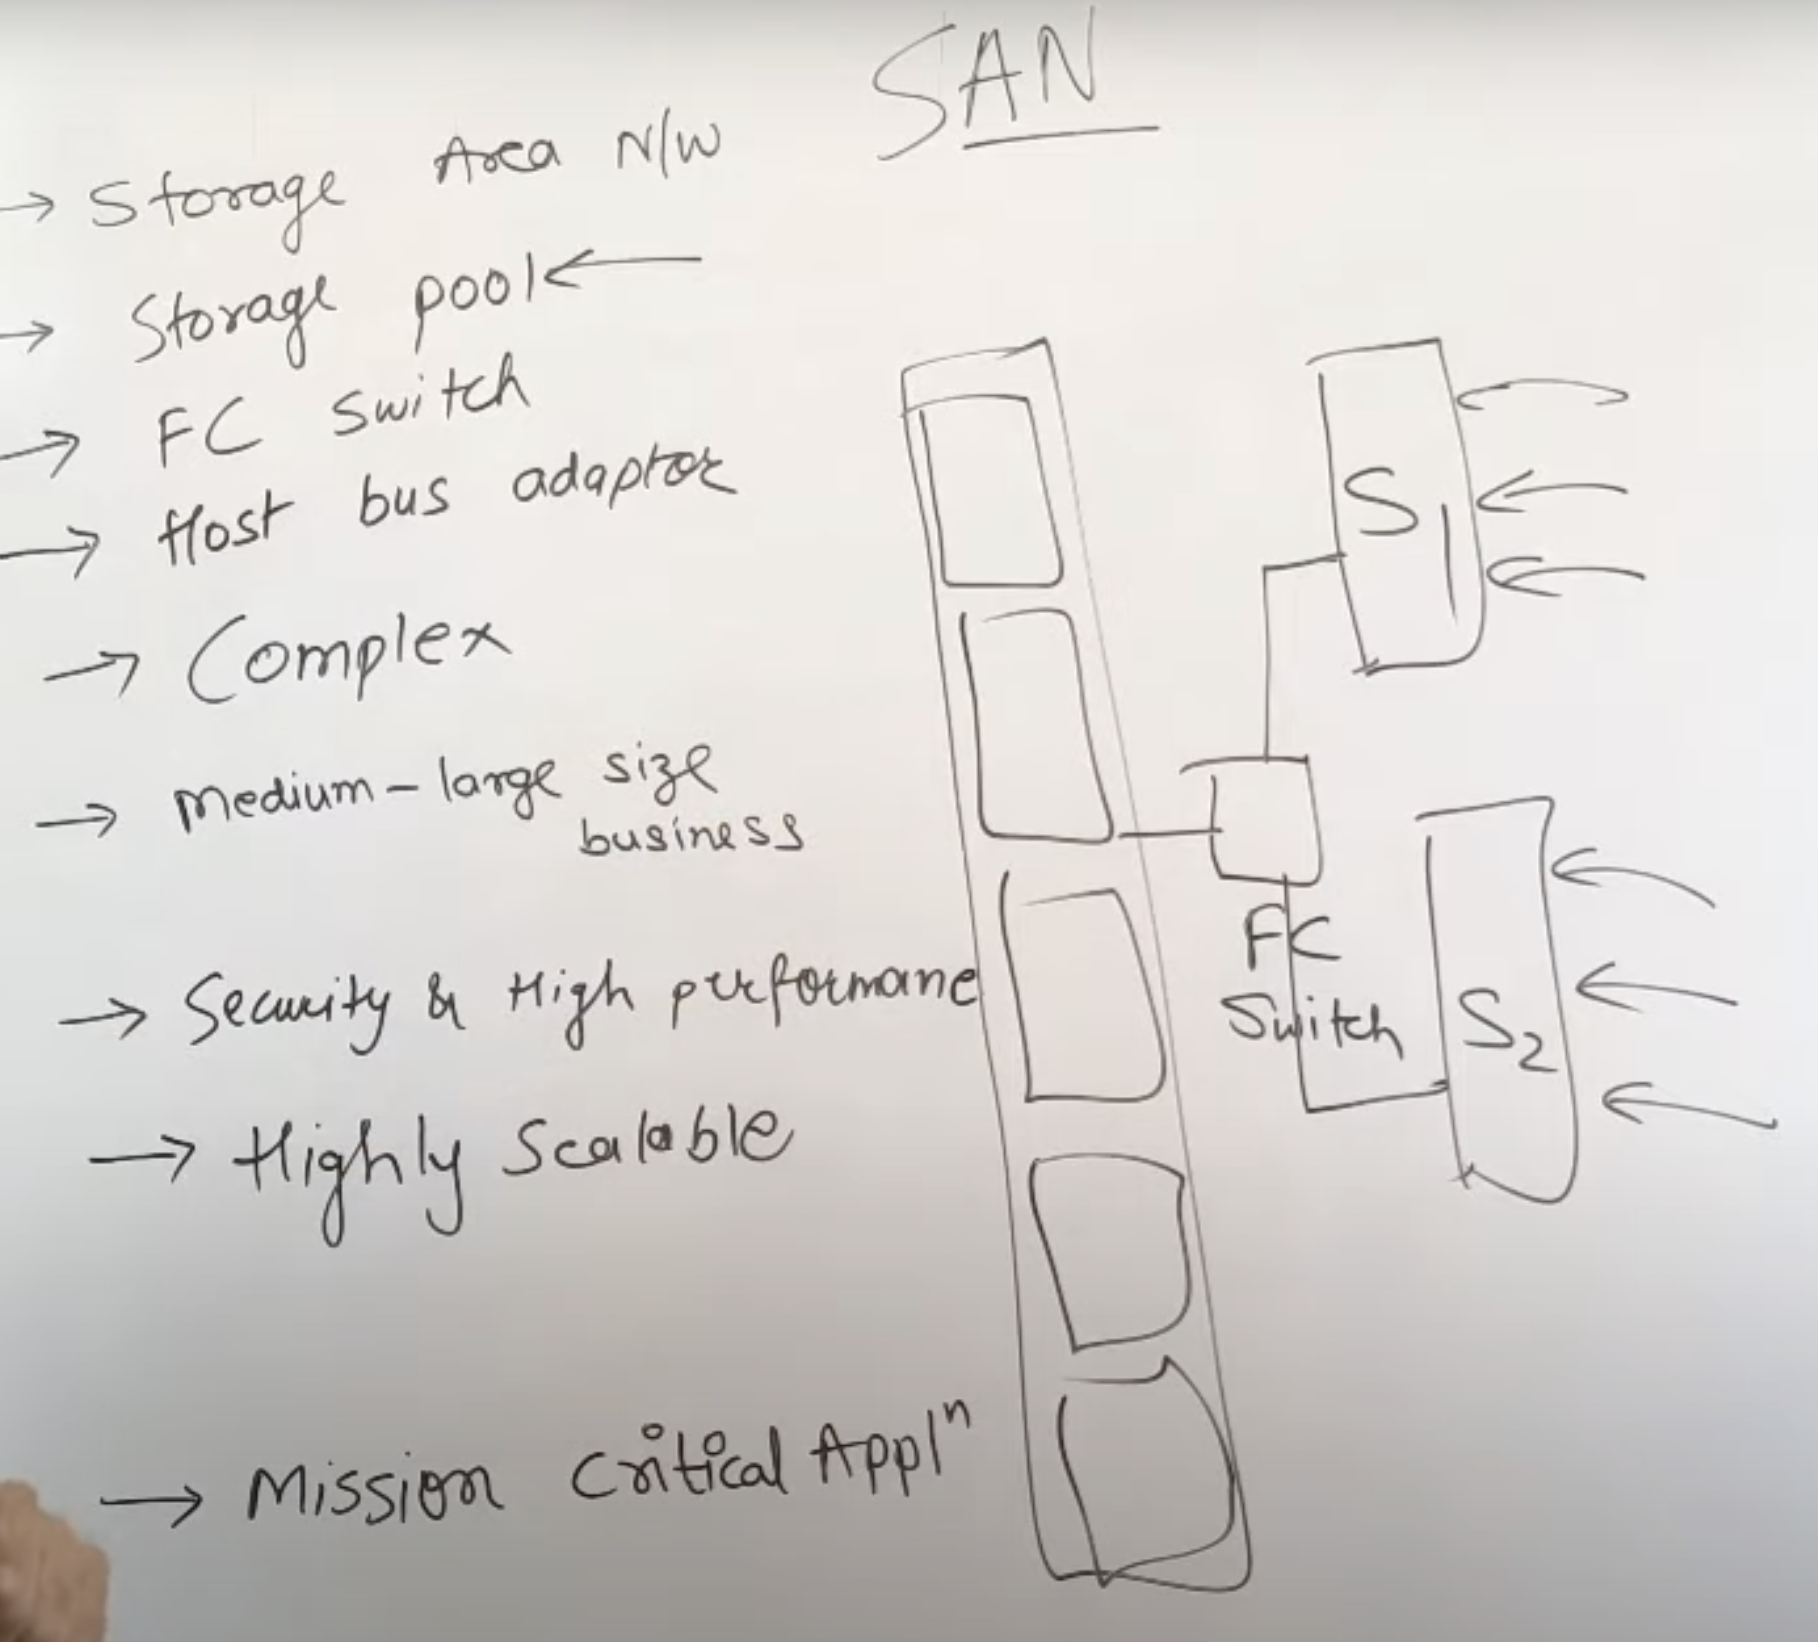 SAN
→ Storage Area N/W
→ Storage pool ←
→ FC Switch
→ Host bus adaptor
→ Complex
→ Medium - large size
business
→ Security & High performane
→ Highly Scalable
→ Mission Critical Applⁿ
S1
FC
Switch
S2